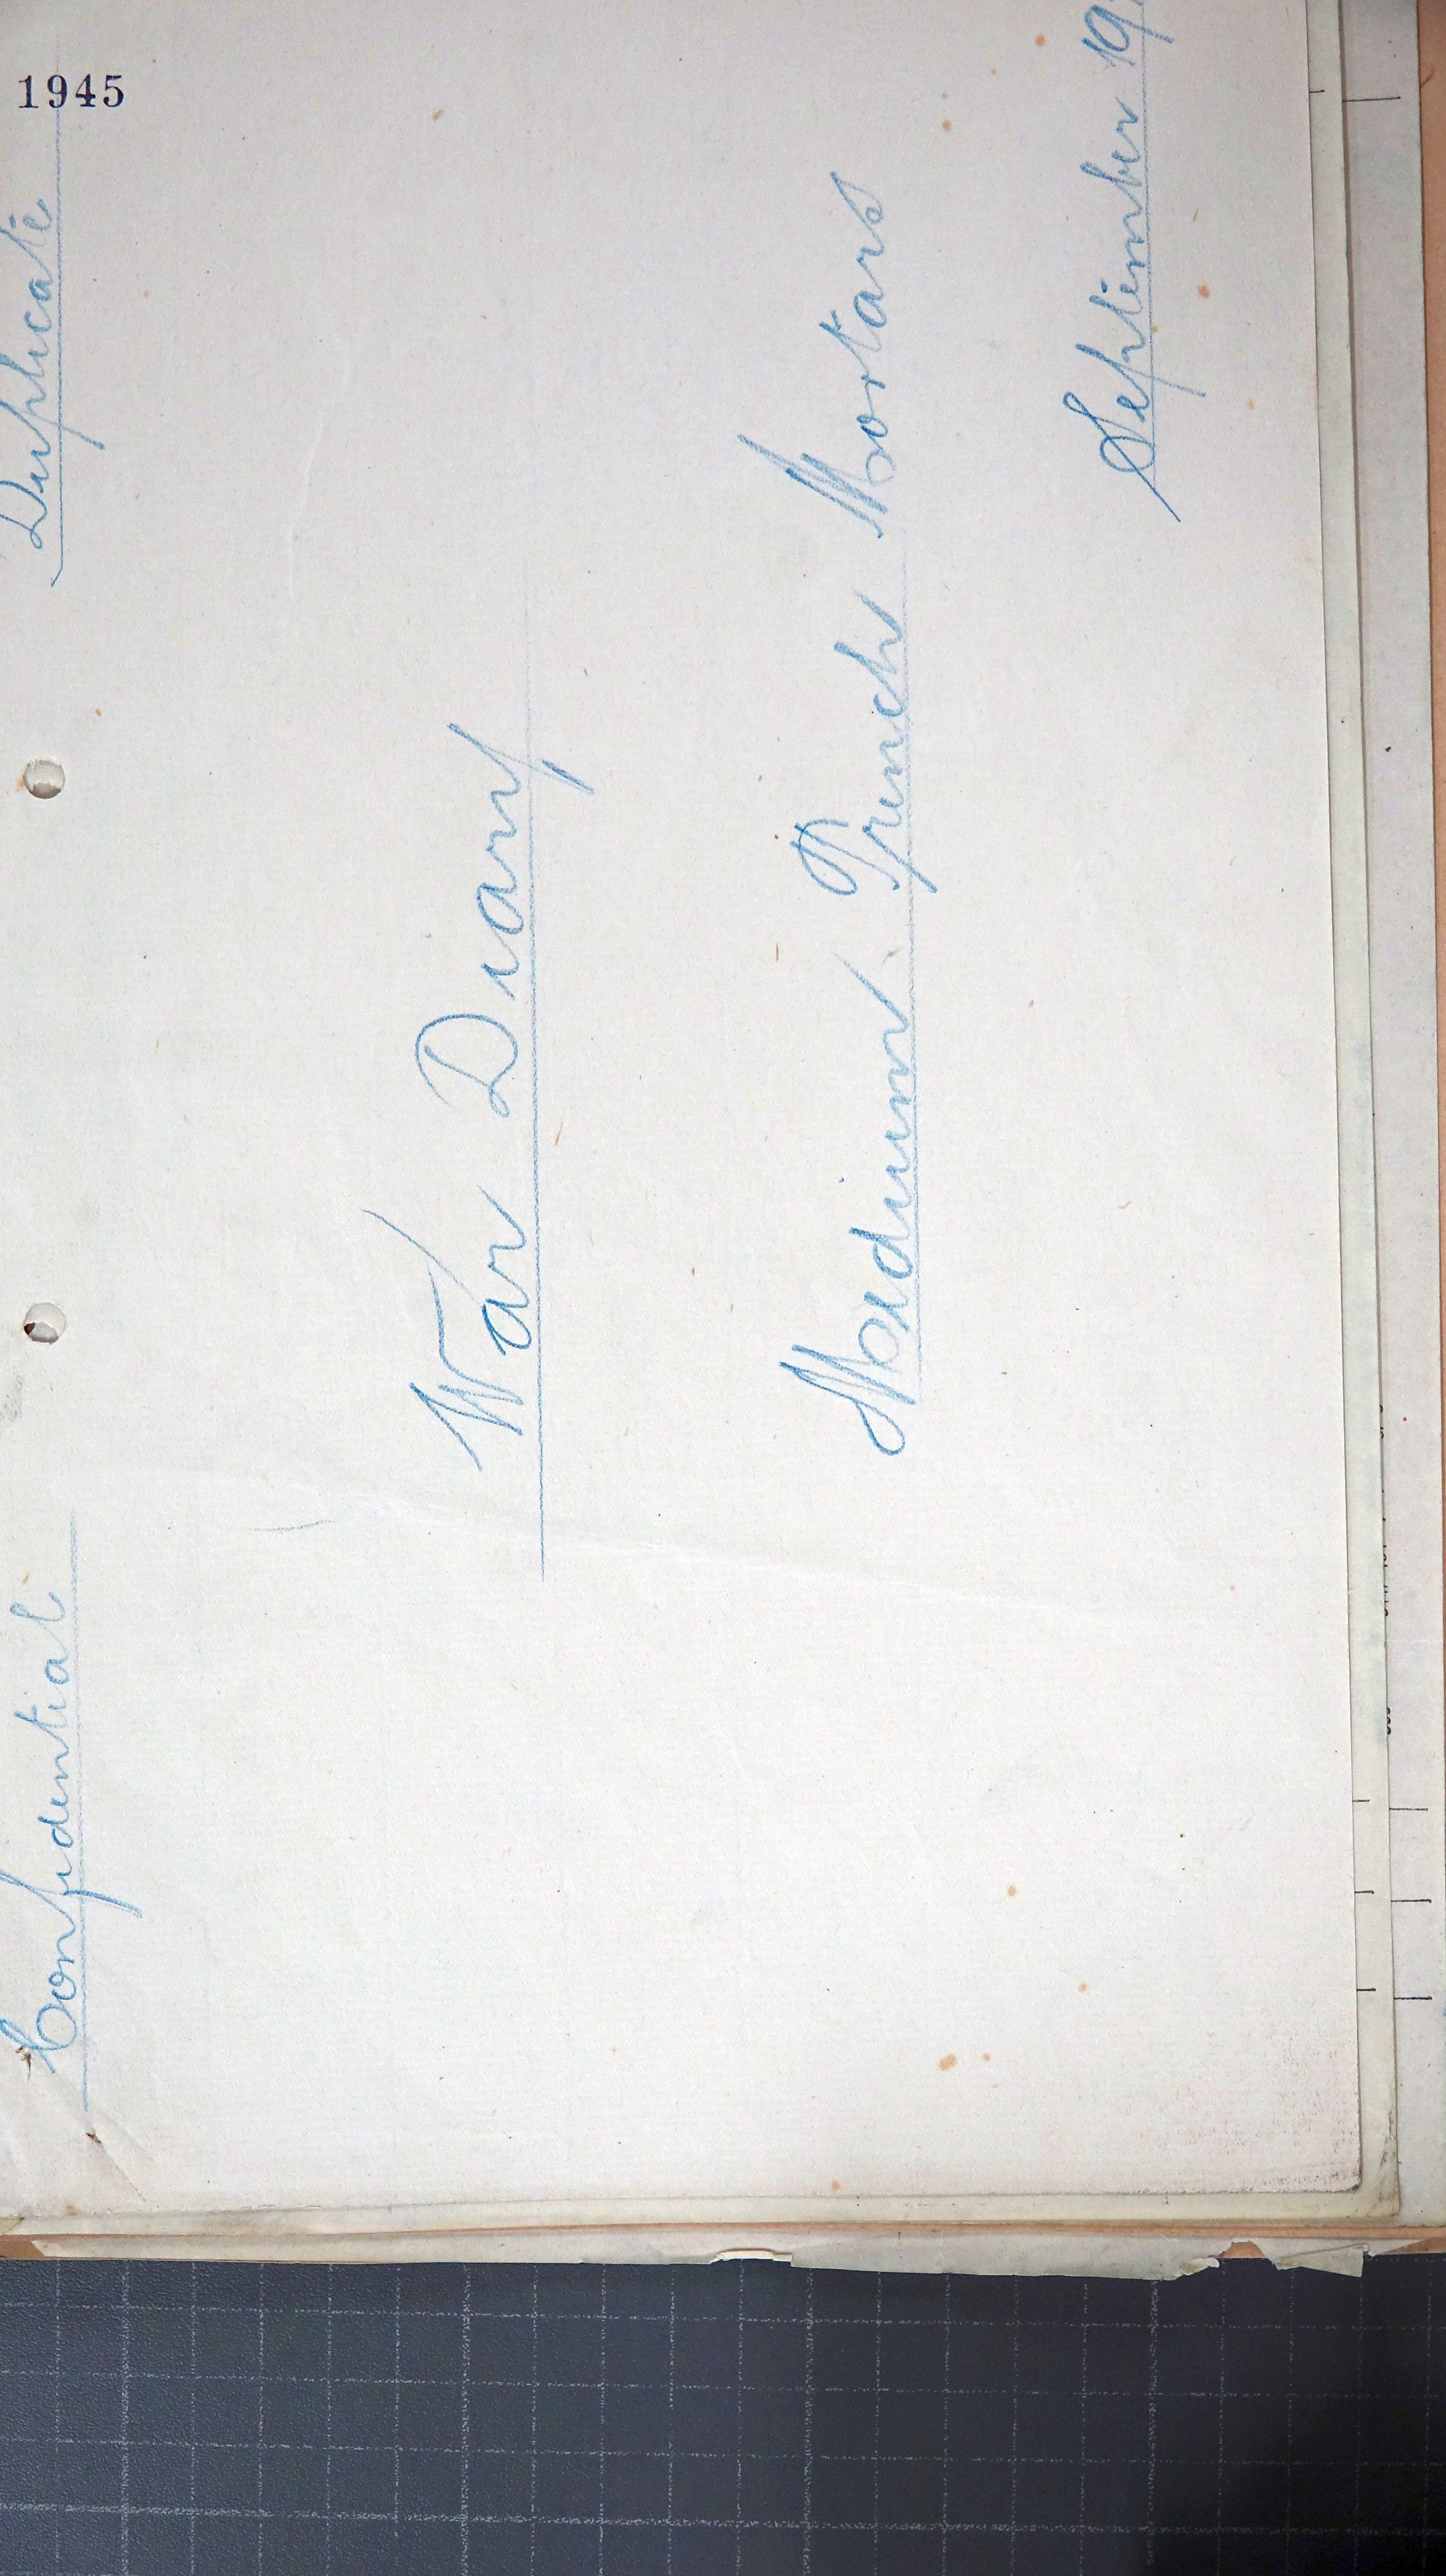 1945
Confidential Duplicate
War Diary
Medium Trench Mortars
September 19